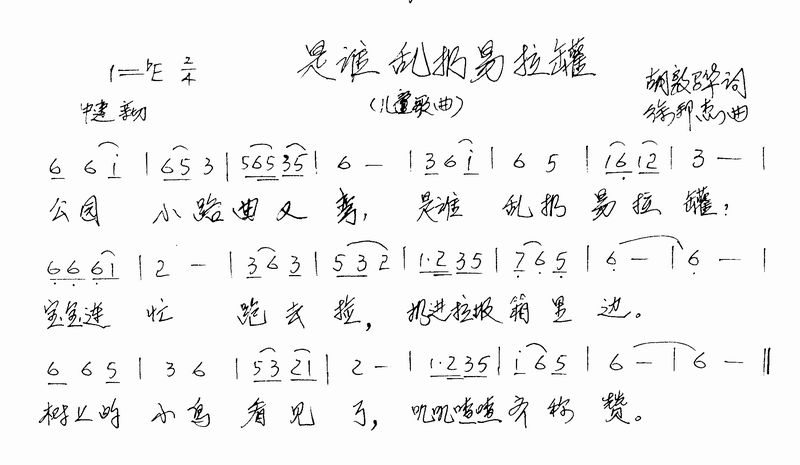 是谁乱扔易拉罐
1=♭E 2/4
(儿童歌曲)
胡敦骅词
徐邦杰曲
6 6 i | 6 5 3 | 5 6 5 3 5 | 6 — | 3 6 i | 6 5 | 1 6 1 2 | 3 — |
公园 小路曲又弯, 是谁 乱扔 易拉罐?
6 6 6 1 | 2 — | 3 6 3 | 5 3 2 | 1·2 3 5 | 7 6 5 | 6 — | 6 — |
宝宝连忙 跑去捡, 扔进垃圾箱里边。
6 6 5 | 3 6 | 5 3 2 1 | 2 — | 1·2 3 5 | i 6 5 | 6 — | 6 — ‖
树上的小鸟看见了, 叽叽喳喳齐称赞。